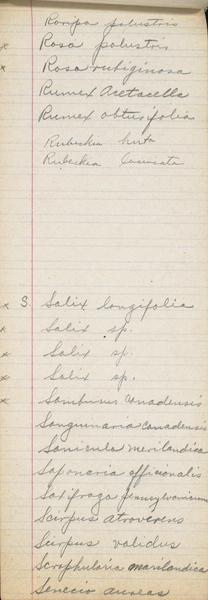 Roripa palustris
x Rosa palustris
x Rosa rubiginosa
Rumex Acetacella
Rumex obtusifolia
Rubeckia hirta
Rubeckia laciniata
x S. Salix longifolia
x Salix sp.
x Salix sp.
x Salix sp.
x Sambucus Canadensis
Sanguinaria canadensis
Sanicula merilandica
Saponaria officionalis
Saxifraga pennsylvanicum
Scirpus atrovirens
Scirpus validus
Scrophularia marilandica
Senecio aureas